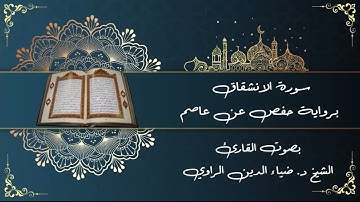 سورة الانشقاق
برواية حفص عن عاصم
بصوت القارئ
الشيخ د. ضياء الدين الراوي